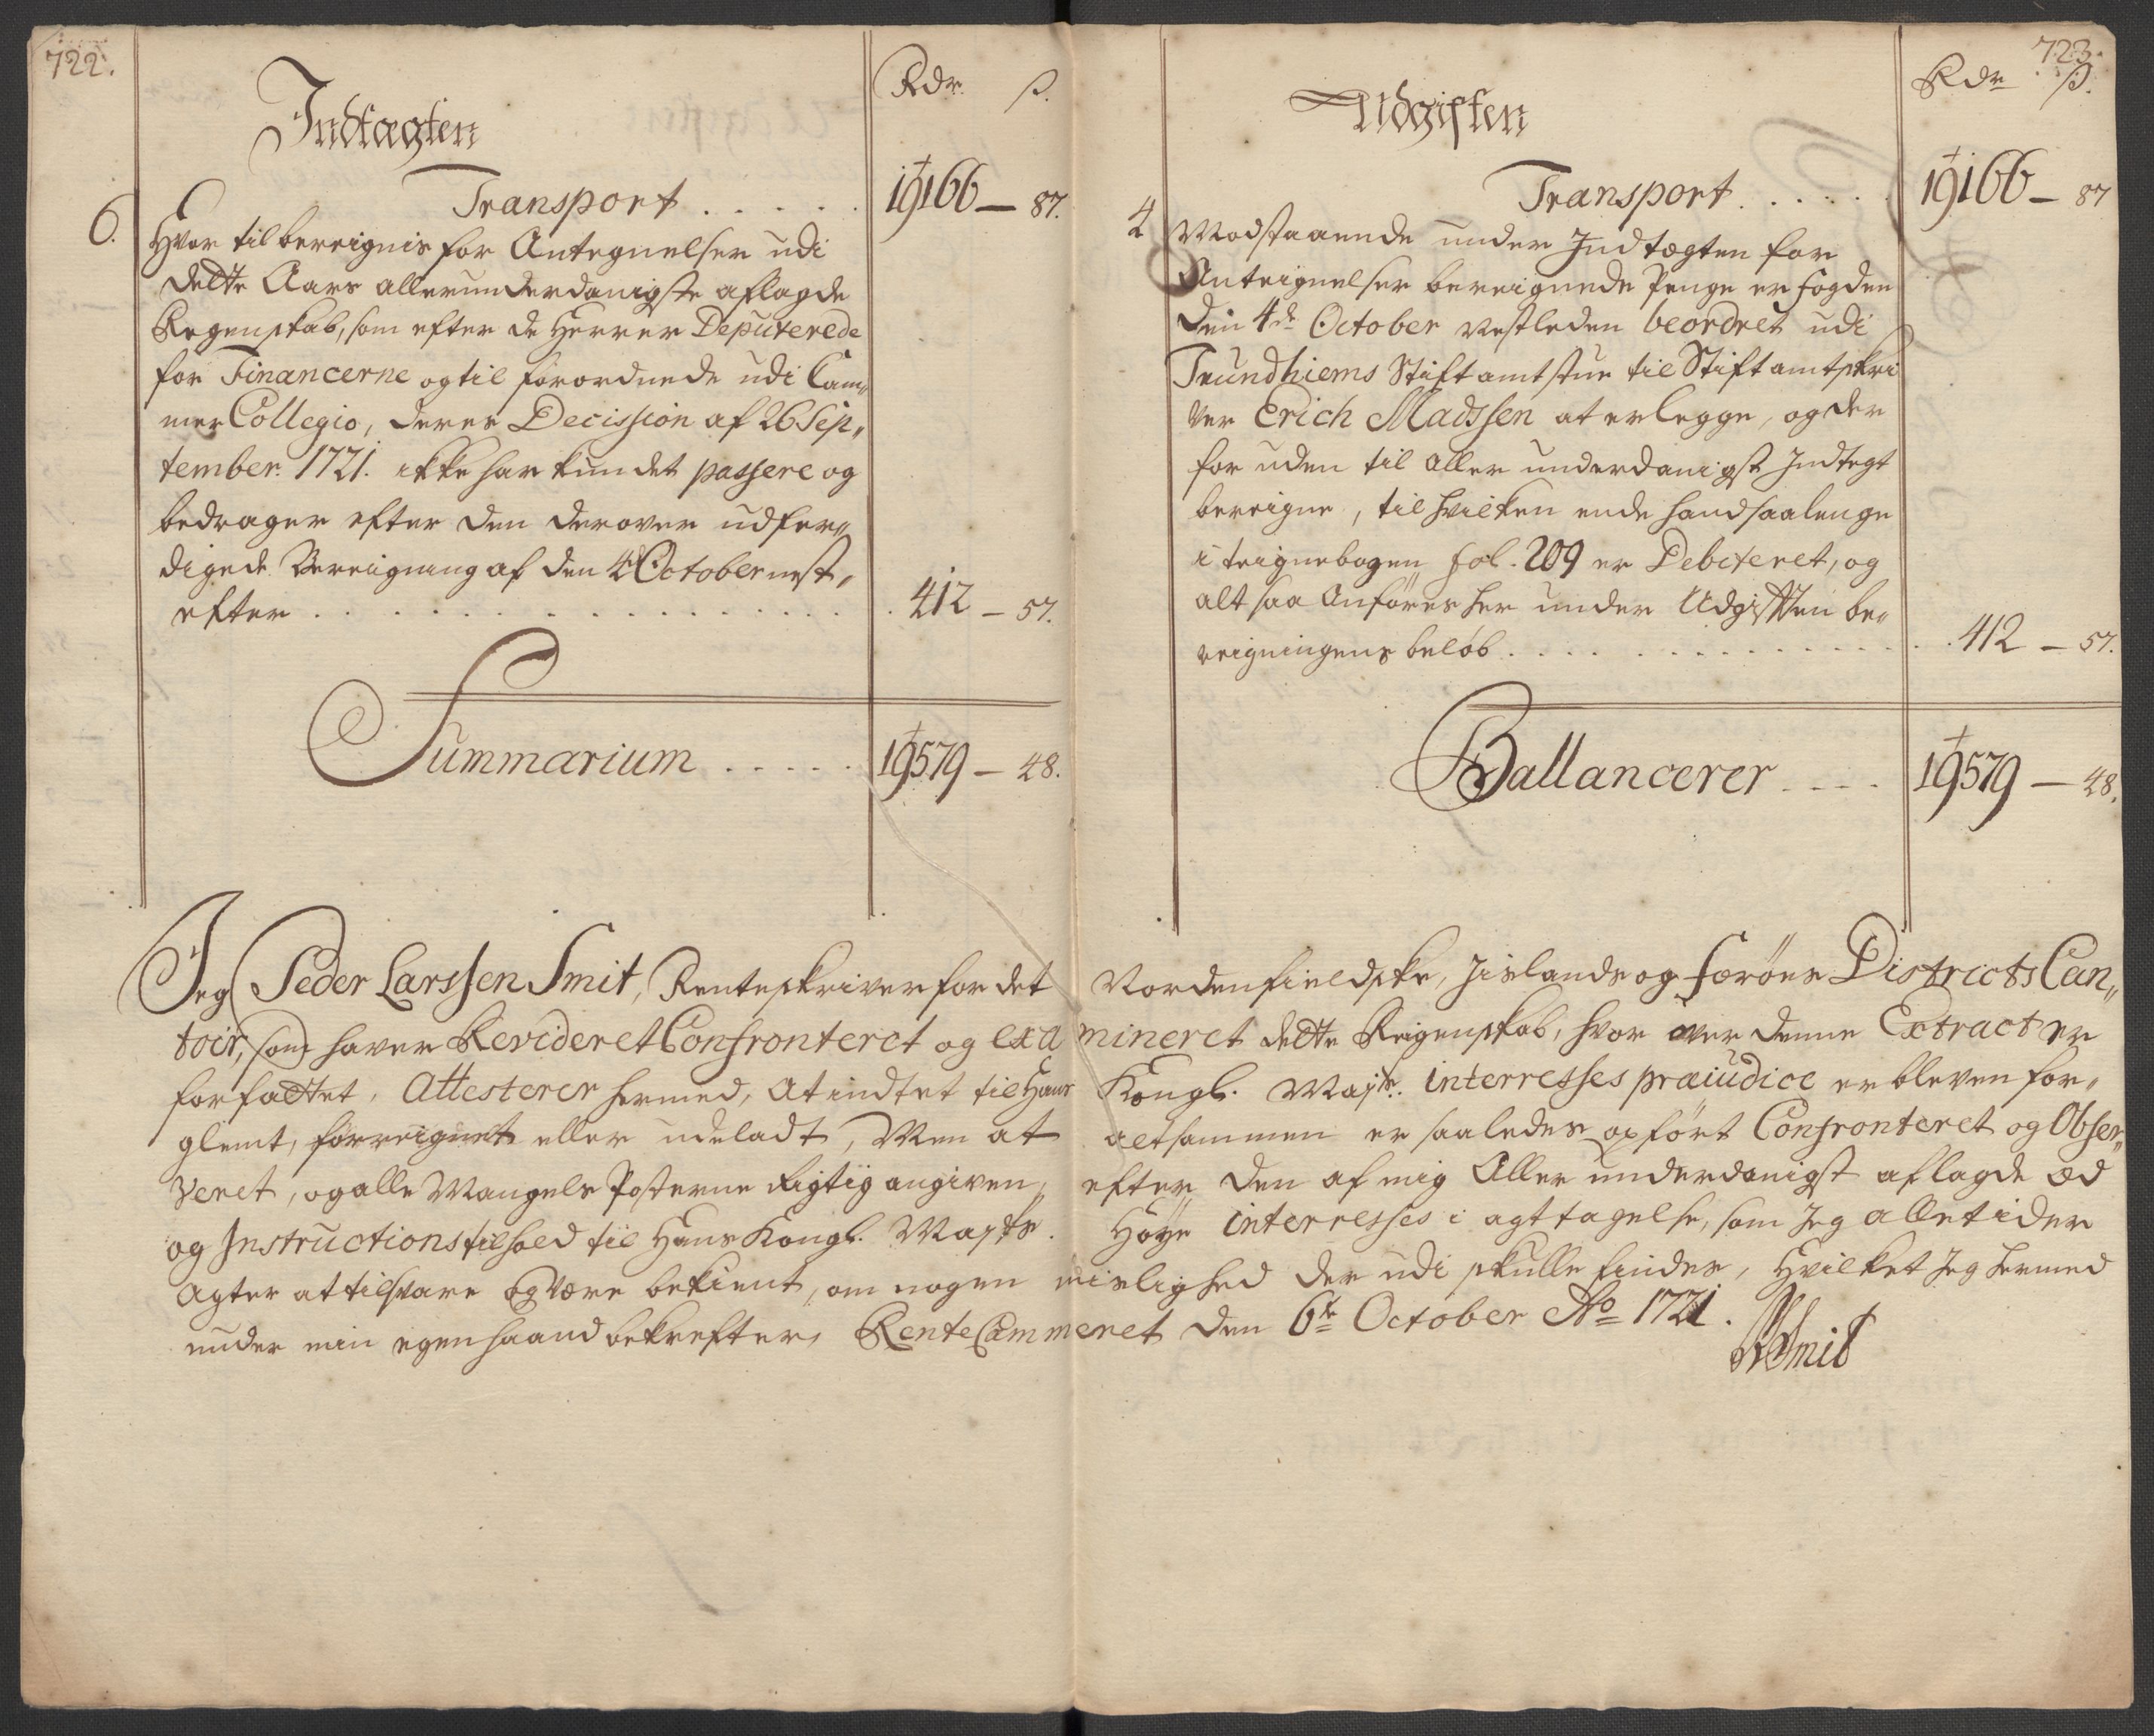 722.
Rdr. ß.
Indtægten
Transport . . . . . 19166 — 87.
6. Hvor til bereignis for Antegnelser udi
dette Aars allerunderdanigste aflagde
Regenskab, som efter de Herrer Deputerede
for Financerne og til forordnede udi Cam„
mer Collegio, deres Decission af 26 Sep„
tember 1721. ikke har kundet passere og
bedrager efter den derover udfer„
digede Bereigning af den 4 October nest„
efter . . . . . . . . . . 412 — 57.
Summarium . . . . . 19579 — 48.
723.
Rdr ß.
Udgiften
Transport . . . . . 19166 — 87
4 Modstaaende under Indtægten for
Anteignelser bereignede Penge er fogden
den 4de October restleden beordret udi
Trundhiems Stiftamtstue til Stiftamtskri
ver Erich Madssen at erlegge, og der
for uden til aller underdanigst Indtegt
bereigne, til hvilken ende hand saalenge
i teignebogen fol. 209 er Debiteret, og
alt saa Anføres her under Udgiften be„
reigningens beløb . . . . . . . . . . 412 — 57.
Ballancerer . . . . 19579 — 48.
Jeg Peder Larssen Smit, Renteskriver for det Nordenfieldske, Jislands og Færöes Districts Can„
toir, som haver Revideret Confronteret og exa mineret dette Reigenskab, hvor over denne Extract er
forfattet, Attesterer hermed, At indtet til Hans Kongl. Majts. interresses præiudice er bleven for„
glemt, forreignet eller udeladt, Men at altsammen er saaledes opført Confronteret og Obser„
veret, og alle Mangels Posterne Rigtig angiven, efter den af mig Aller underdanigst aflagde Æd
og Instructions tilhold til Hans Kongl. Majts. Høye interresses i agttagelse, som Jeg alletider
Agter at tilsvare og være bekient, om nogen vislighed der udi skulle findes, Hvilket Jeg hermed
under min egen haand bekrefter, RenteCammeret den 6te October Ao 1721.
Smit